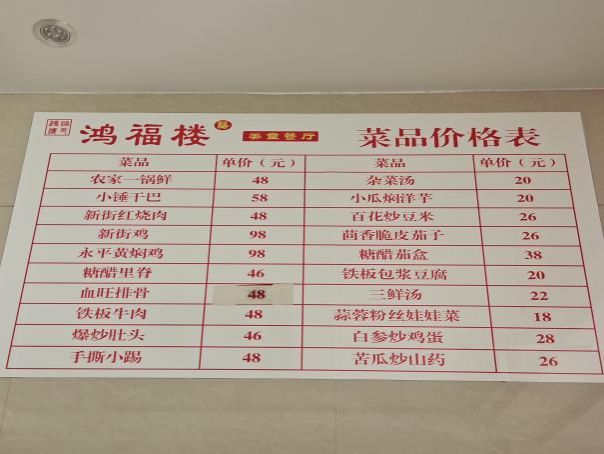 鸿福楼 美食餐厅 菜品价格表
菜品 单价（元） 菜品 单价（元）
农家一锅鲜 48 杂菜汤 20
小锤干巴 58 小瓜焖洋芋 20
新街红烧肉 48 百花炒豆米 26
新街鸡 98 茴香脆皮茄子 26
永平黄焖鸡 98 糖醋茄盒 38
糖醋里脊 46 铁板包浆豆腐 20
血旺排骨 48 三鲜汤 22
铁板牛肉 48 蒜蓉粉丝娃娃菜 18
爆炒肚头 46 白参炒鸡蛋 28
手撕小踢 48 苦瓜炒山药 26